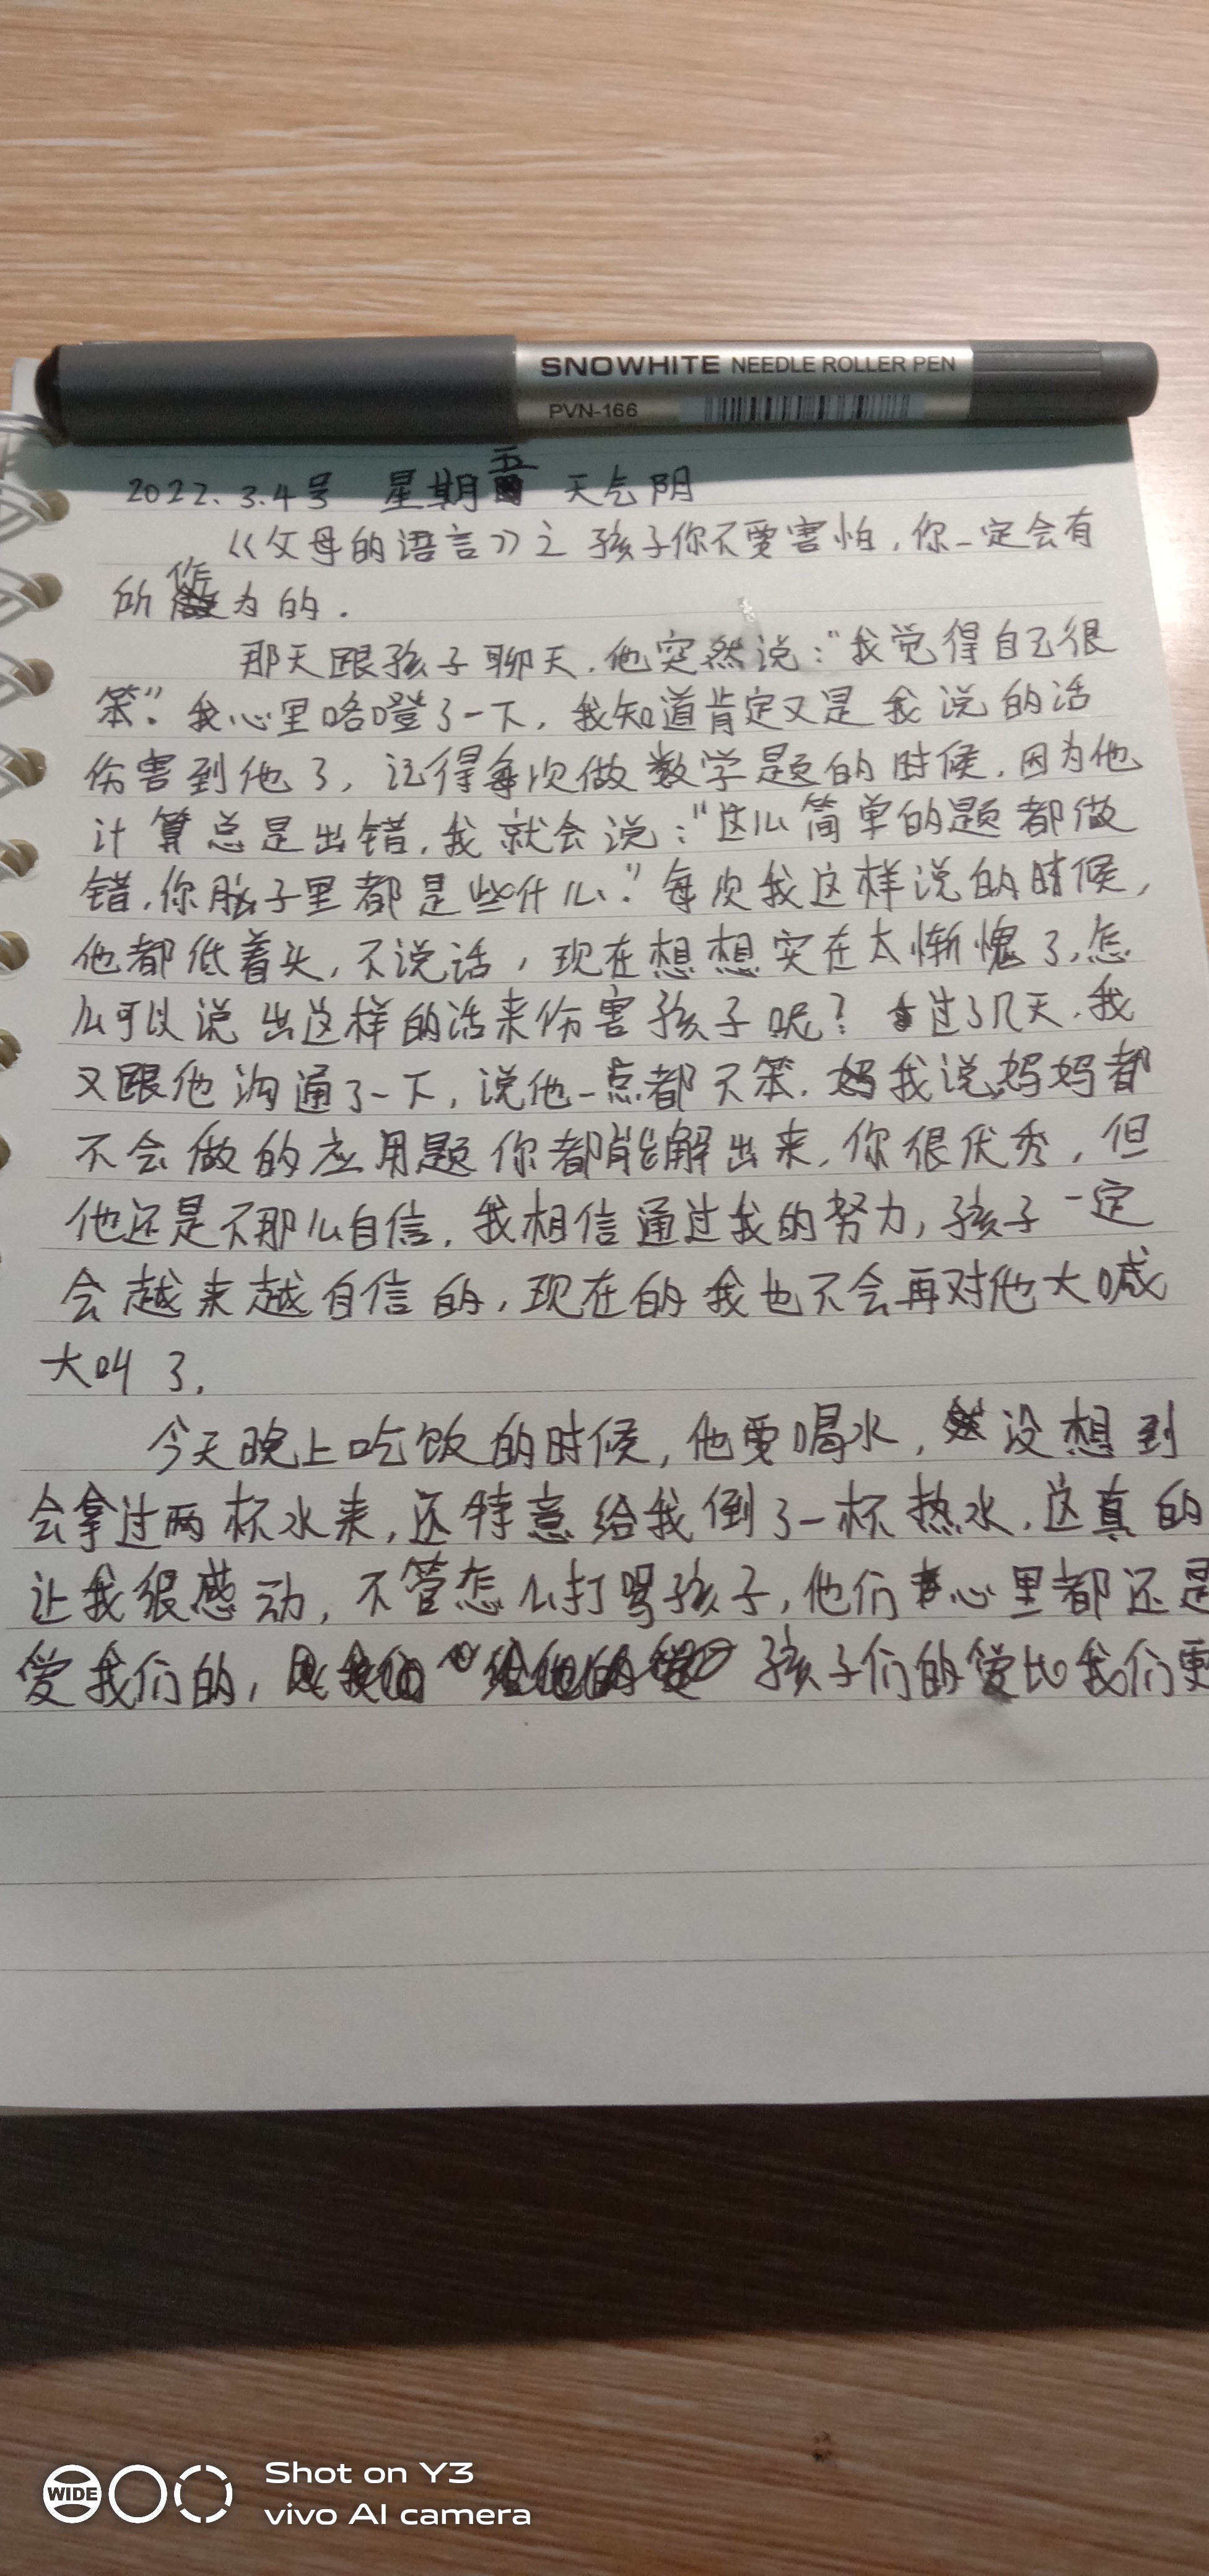 SNOWHITE NEEDLE ROLLER PEN
PVN-166
2022.3.4号 星期五 天气阴
《父母的语言》之孩子你不要害怕,你一定会有
所作为的.
那天跟孩子聊天.他突然说:"我觉得自己很
笨". 我心里咯噔了一下,我知道肯定又是我说的话
伤害到他了,记得每次做数学题的时候,因为他
计算总是出错,我就会说:"这么简单的题都做
错,你脑子里都是些什么." 每次我这样说的时候,
他都低着头,不说话,现在想想实在太惭愧了,怎
么可以说出这样的话来伤害孩子呢? 过了几天.我
又跟他沟通了一下,说他一点都不笨.我说妈妈都
不会做的应用题你都能解出来,你很优秀,但
他还是不那么自信,我相信通过我的努力,孩子一定
会越来越自信的,现在的我也不会再对他大喊
大叫了.
今天晚上吃饭的时候,他要喝水,没想到
会拿过两杯水来,还特意给我倒了一杯热水,这真的
让我很感动,不管怎么打骂孩子,他们心里都还是
爱我们的,孩子们的爱比我们更
WIDE
Shot on Y3
vivo AI camera